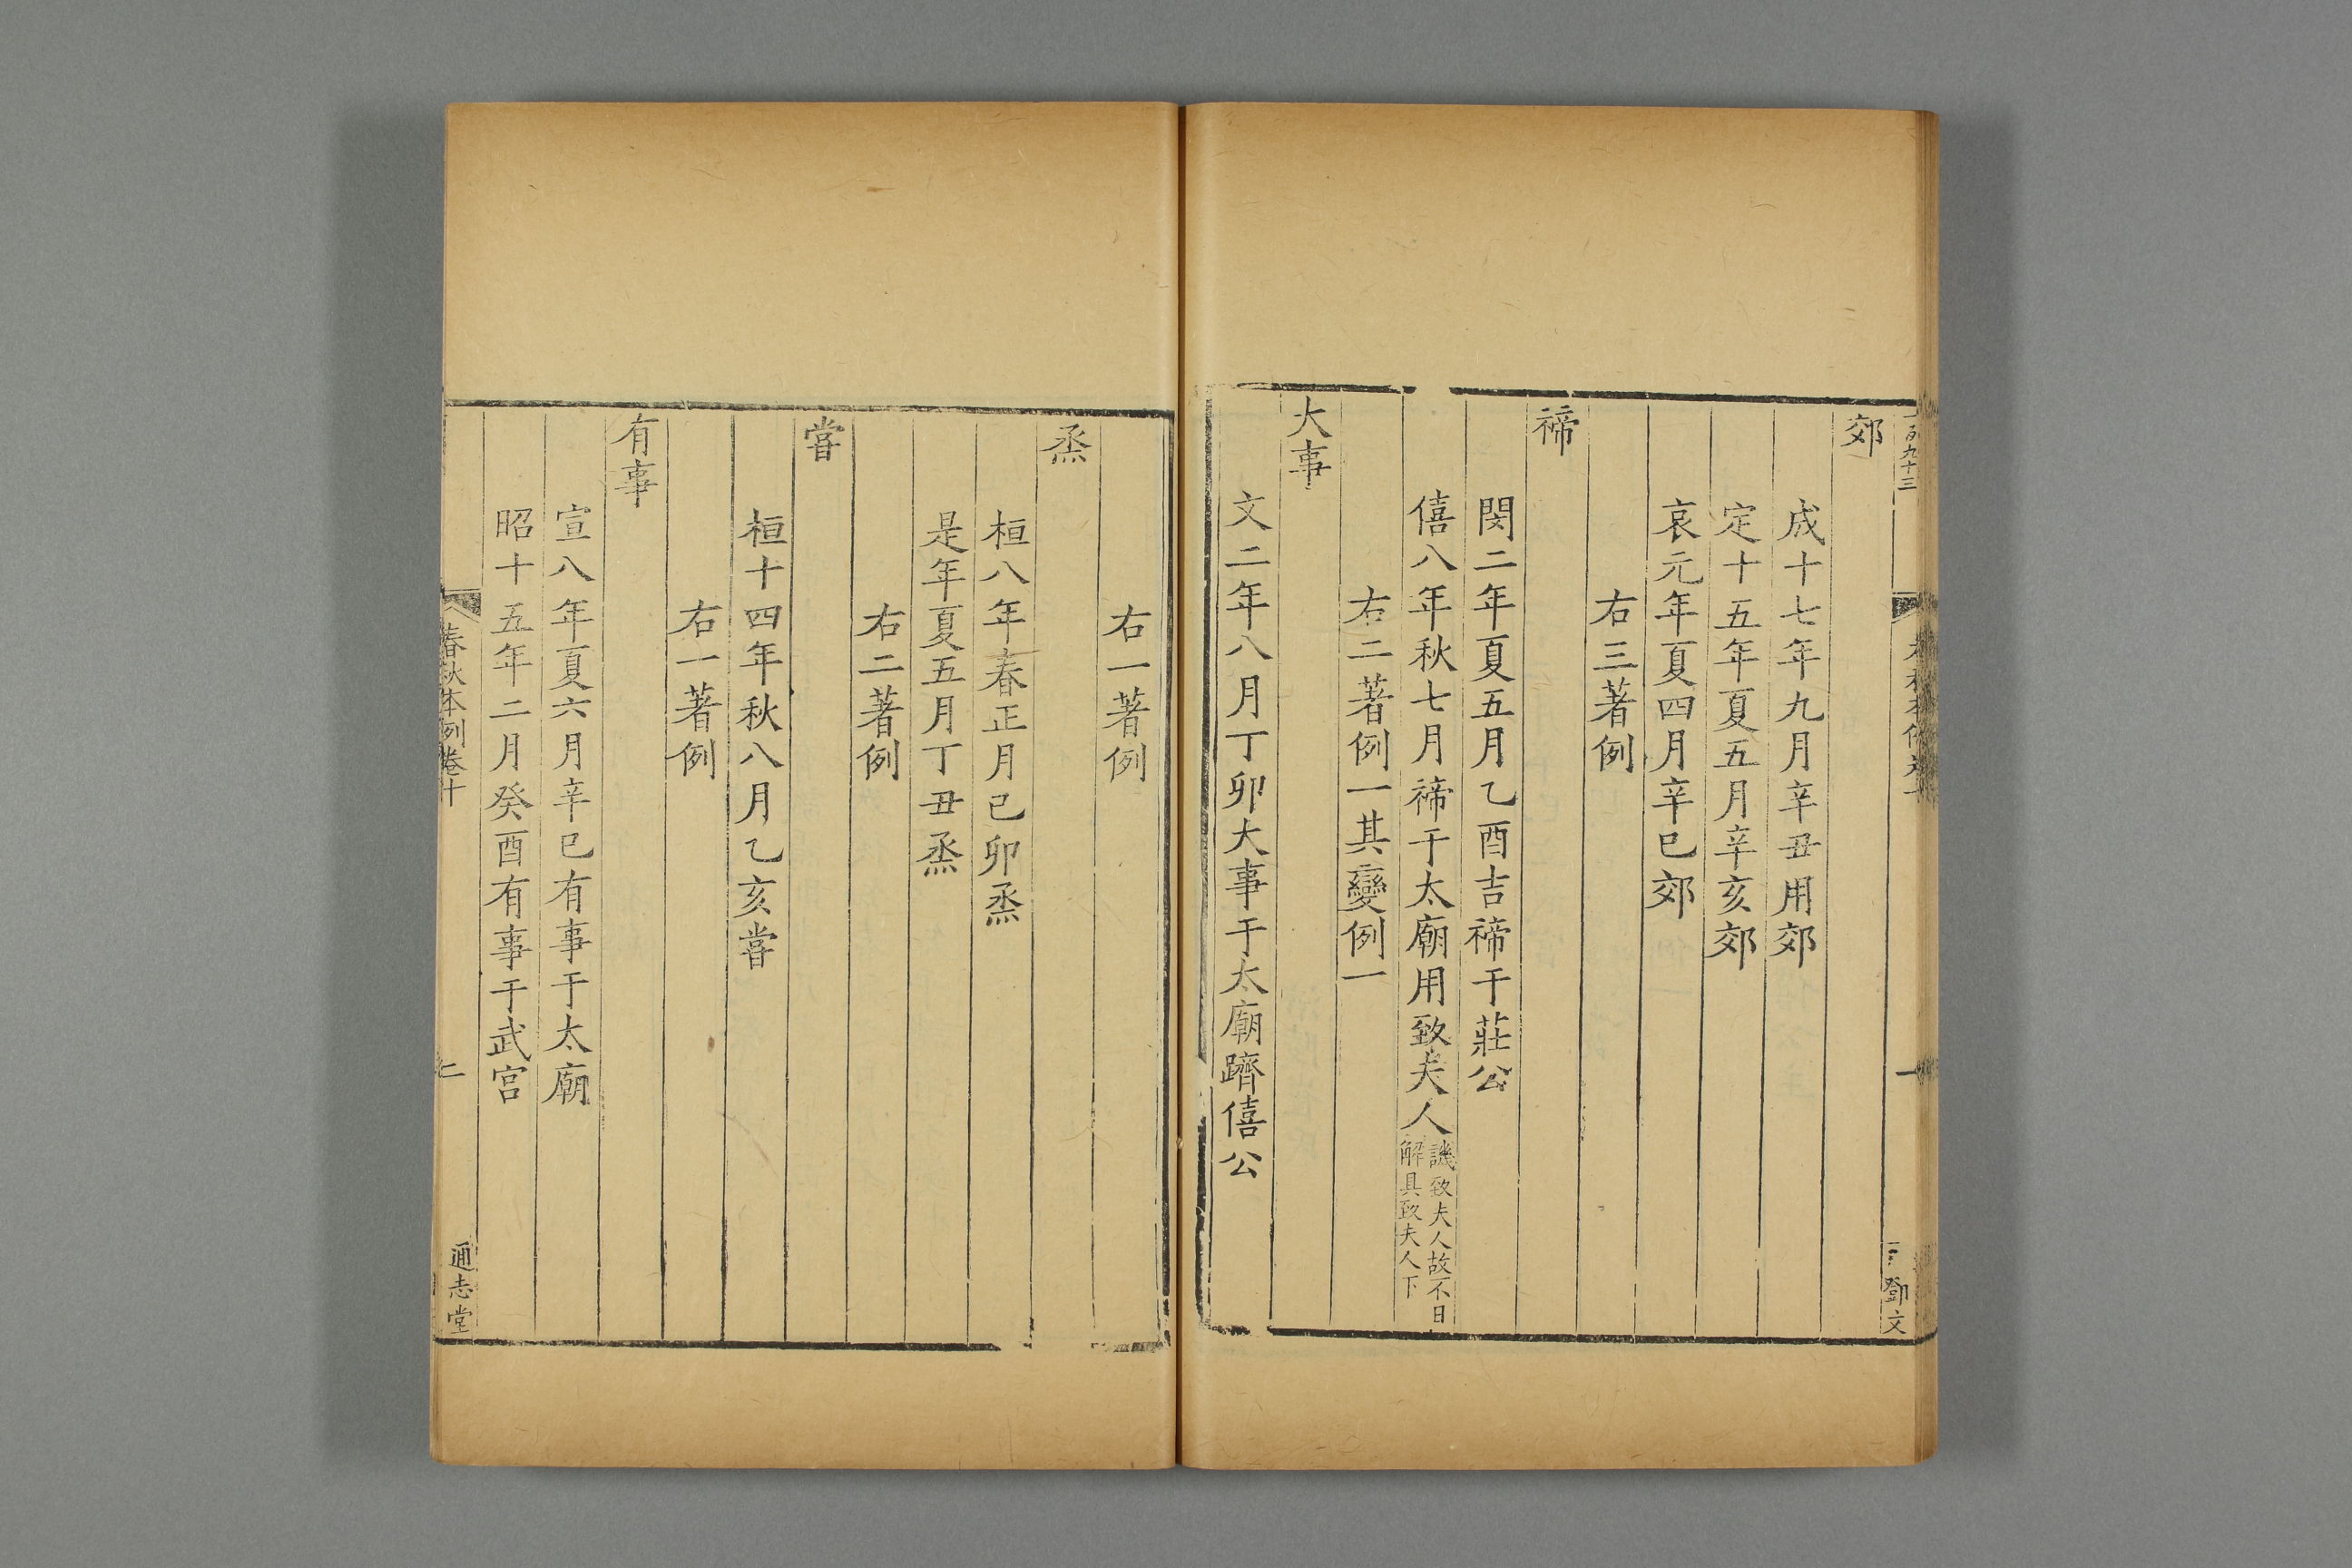 郊
成十七年九月辛丑用郊
定十五年夏五月辛亥郊
哀元年夏四月辛巳郊
右三著例
禘
閔二年夏五月乙酉吉禘于莊公
僖八年秋七月禘于太廟用致夫人譏致夫人故不日
解具致夫人下
右二著例一其變例一
大事
文二年八月丁卯大事于太廟躋僖公
鄧文
右一著例
烝
桓八年春正月己卯烝
是年夏五月丁丑烝
右二著例
嘗
桓十四年秋八月乙亥嘗
右一著例
有事
宣八年夏六月辛巳有事于太廟
昭十五年二月癸酉有事于武宮
春秋本例卷十
二
通志堂